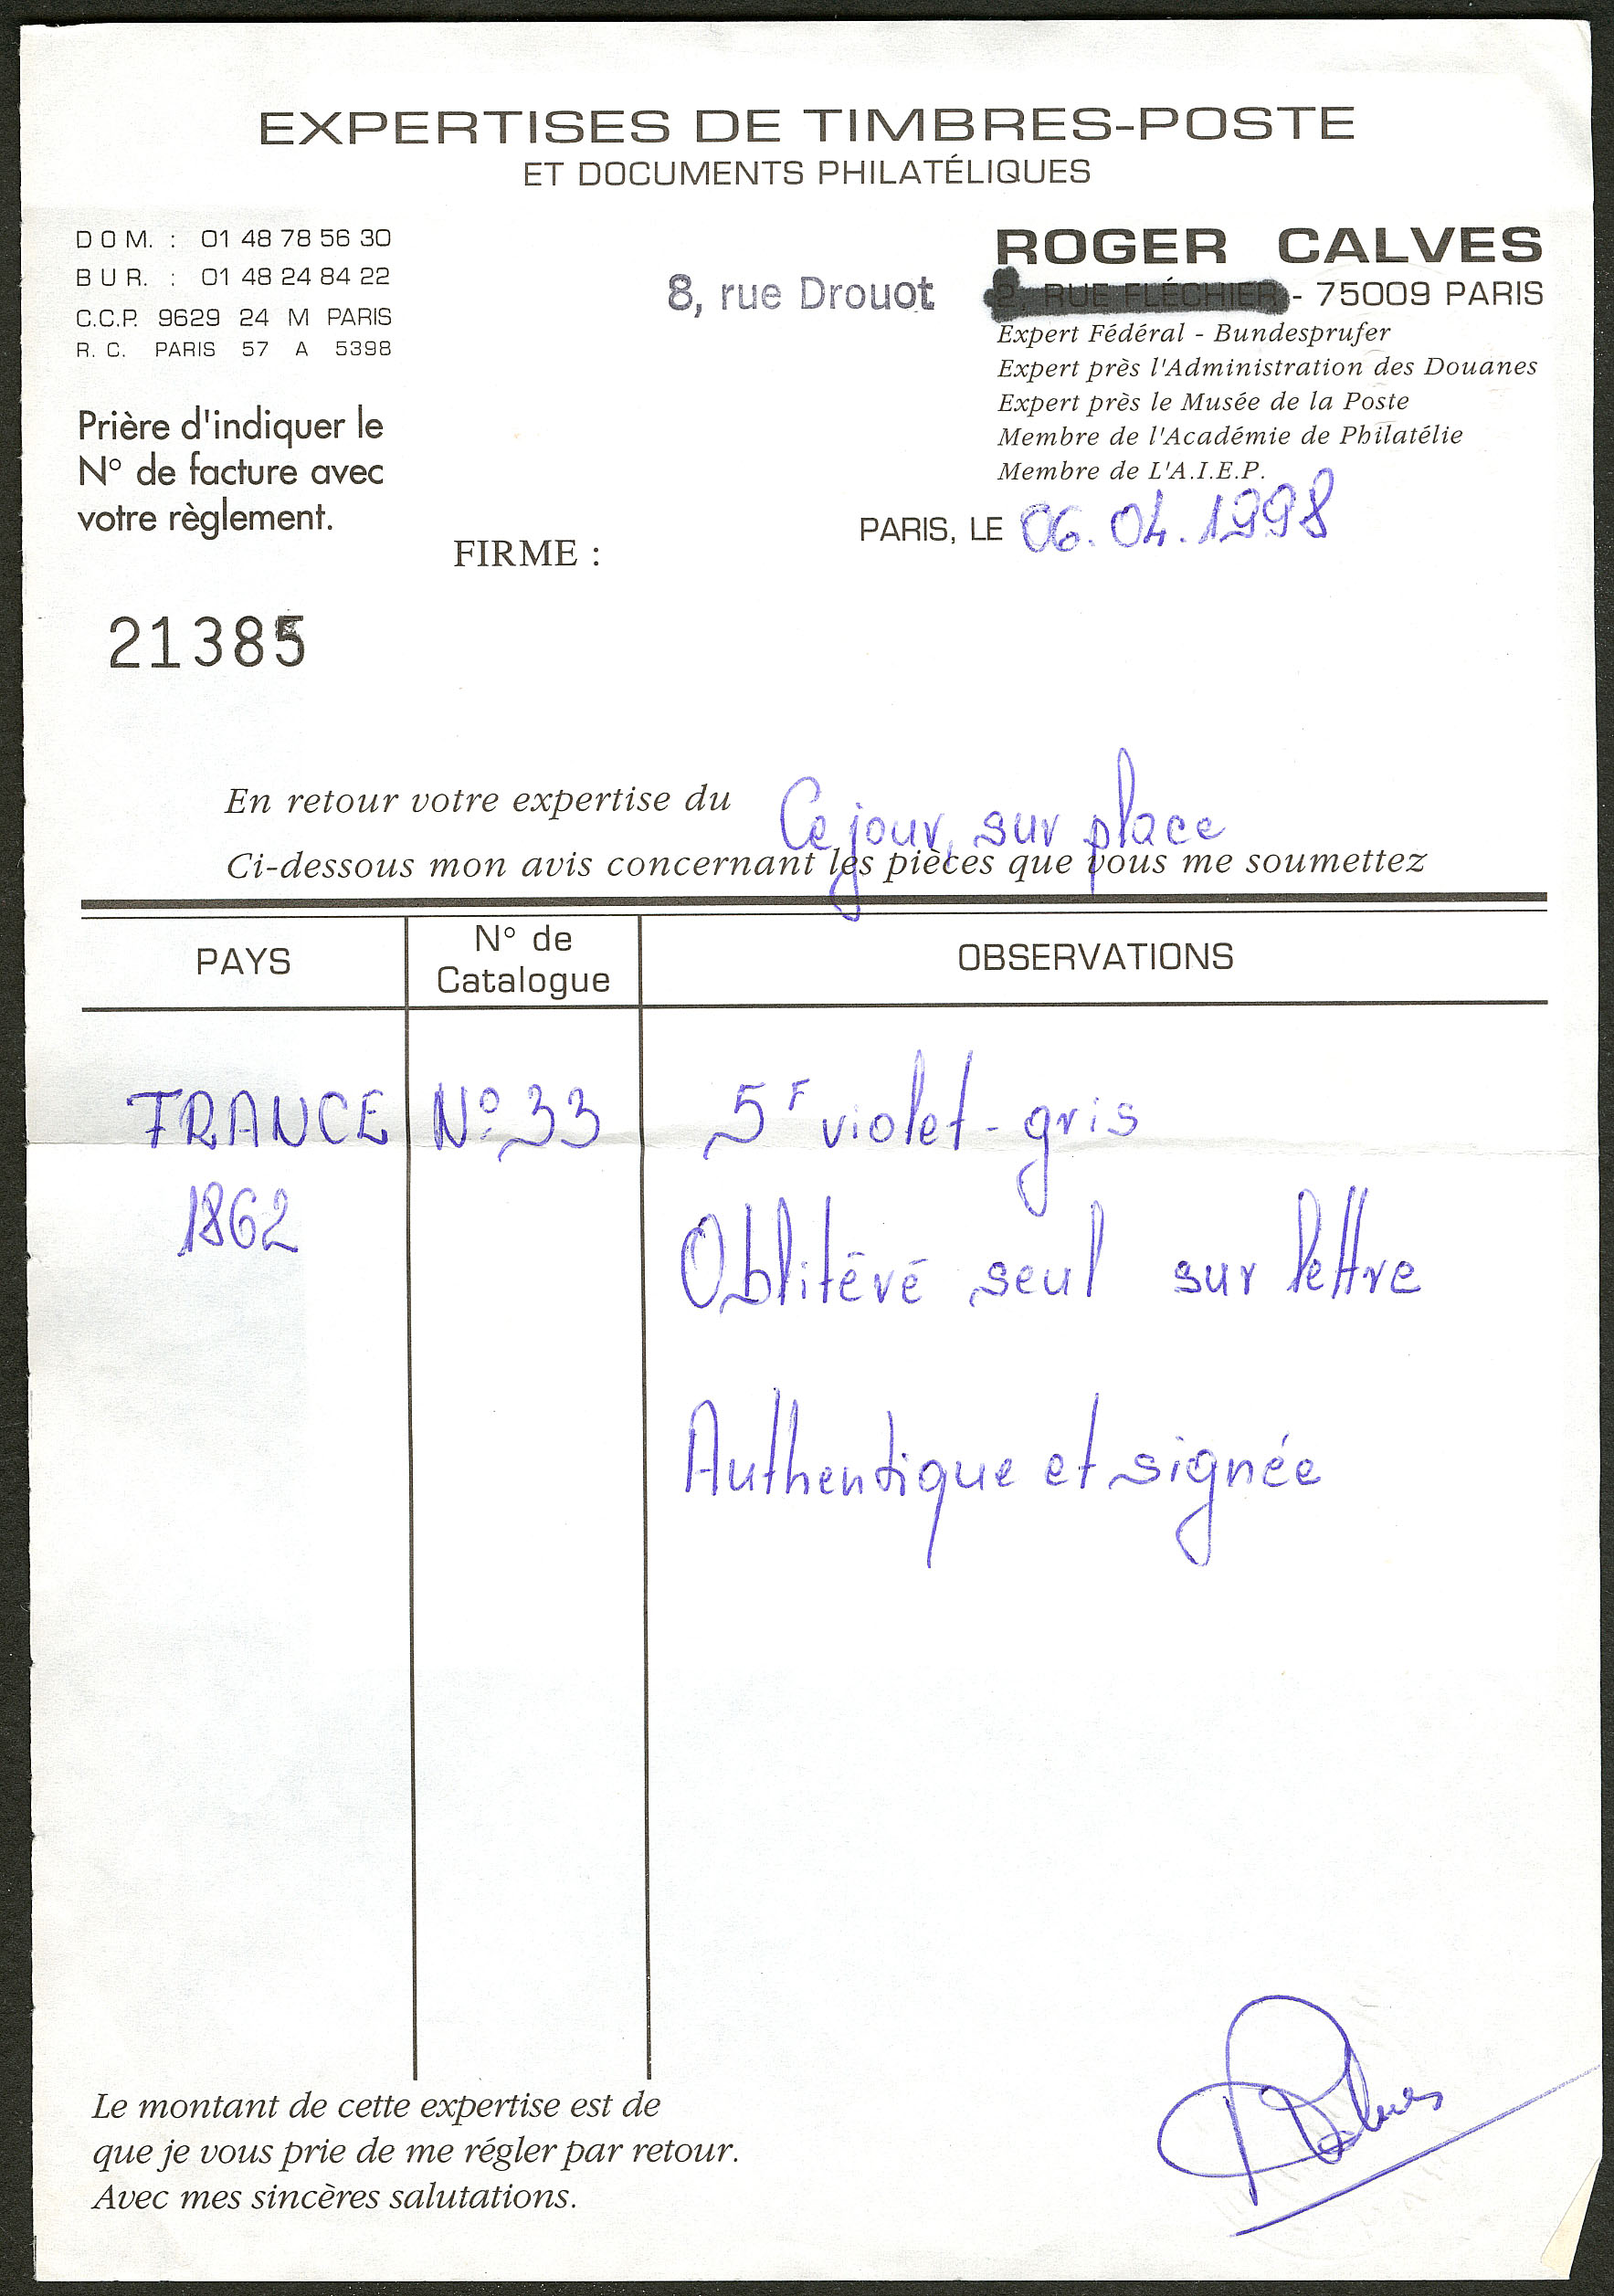 EXPERTISES DE TIMBRES-POSTE
ET DOCUMENTS PHILATÉLIQUES
DOM. : 01 48 78 56 30
BUR. : 01 48 24 84 22
C.C.P. 9629 24 M PARIS
R. C. PARIS 57 A 5398
Prière d'indiquer le
N° de facture avec
votre règlement.
ROGER CALVES
8, rue Drouot
2, RUE FLÉCHIER - 75009 PARIS
Expert Fédéral - Bundesprufer
Expert près l'Administration des Douanes
Expert près le Musée de la Poste
Membre de l'Académie de Philatélie
Membre de L'A.I.E.P.
PARIS, LE 06.04.1998
FIRME :
21385
En retour votre expertise du Ce jour, sur place
Ci-dessous mon avis concernant les pièces que vous me soumettez
PAYS
N° de
Catalogue
OBSERVATIONS
FRANCE N° 33 5F violet-gris
1862
Oblitéré seul sur lettre
Authentique et signée
Le montant de cette expertise est de
que je vous prie de me régler par retour.
Avec mes sincères salutations.
RCalves